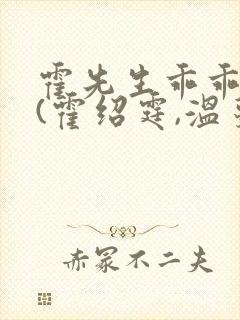 霍先生乖乖
(霍绍霆,温
赤冢不二夫